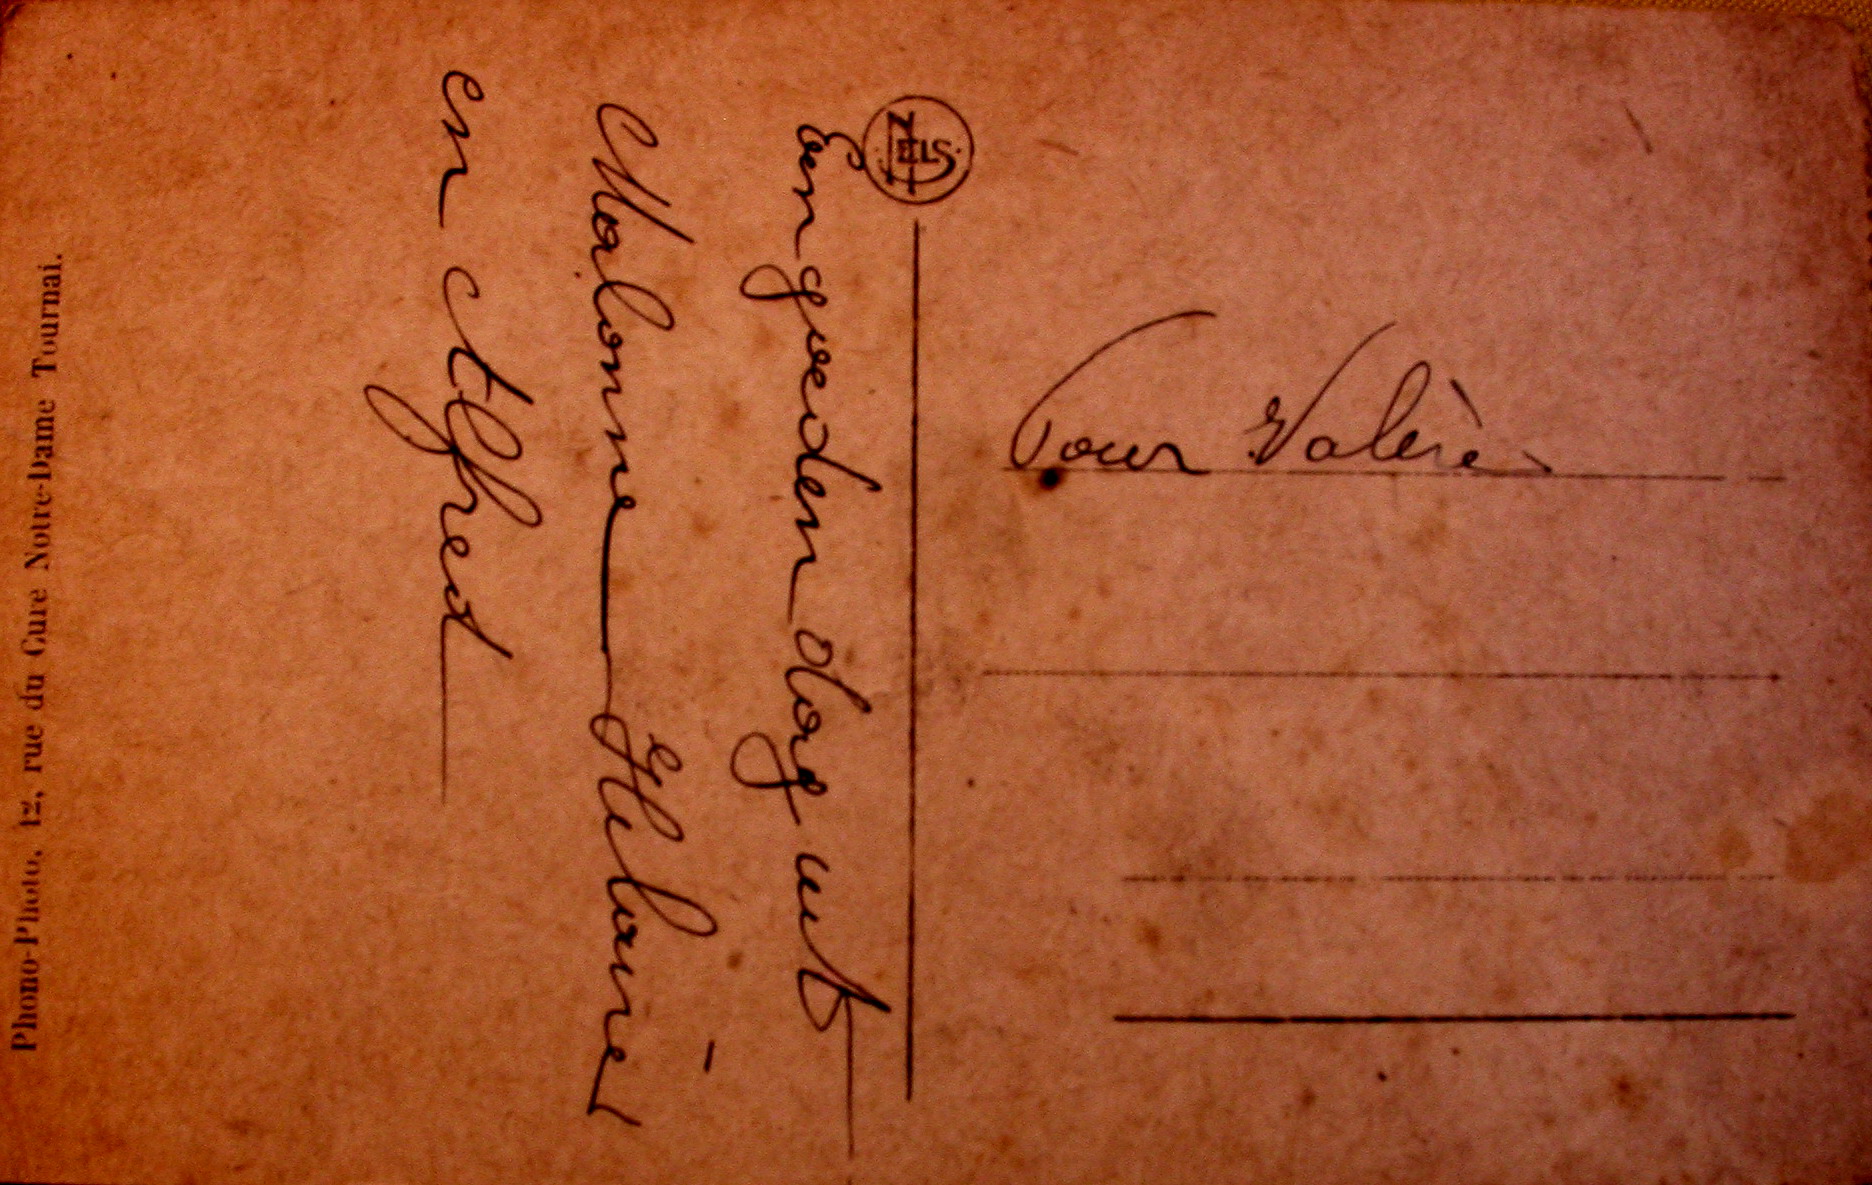 Een goeden dag uit
Malonne Helavie
en Alfred
NELS
Pour Valère
Phono-Photo, 12, rue du Curé Notre-Dame Tournai.